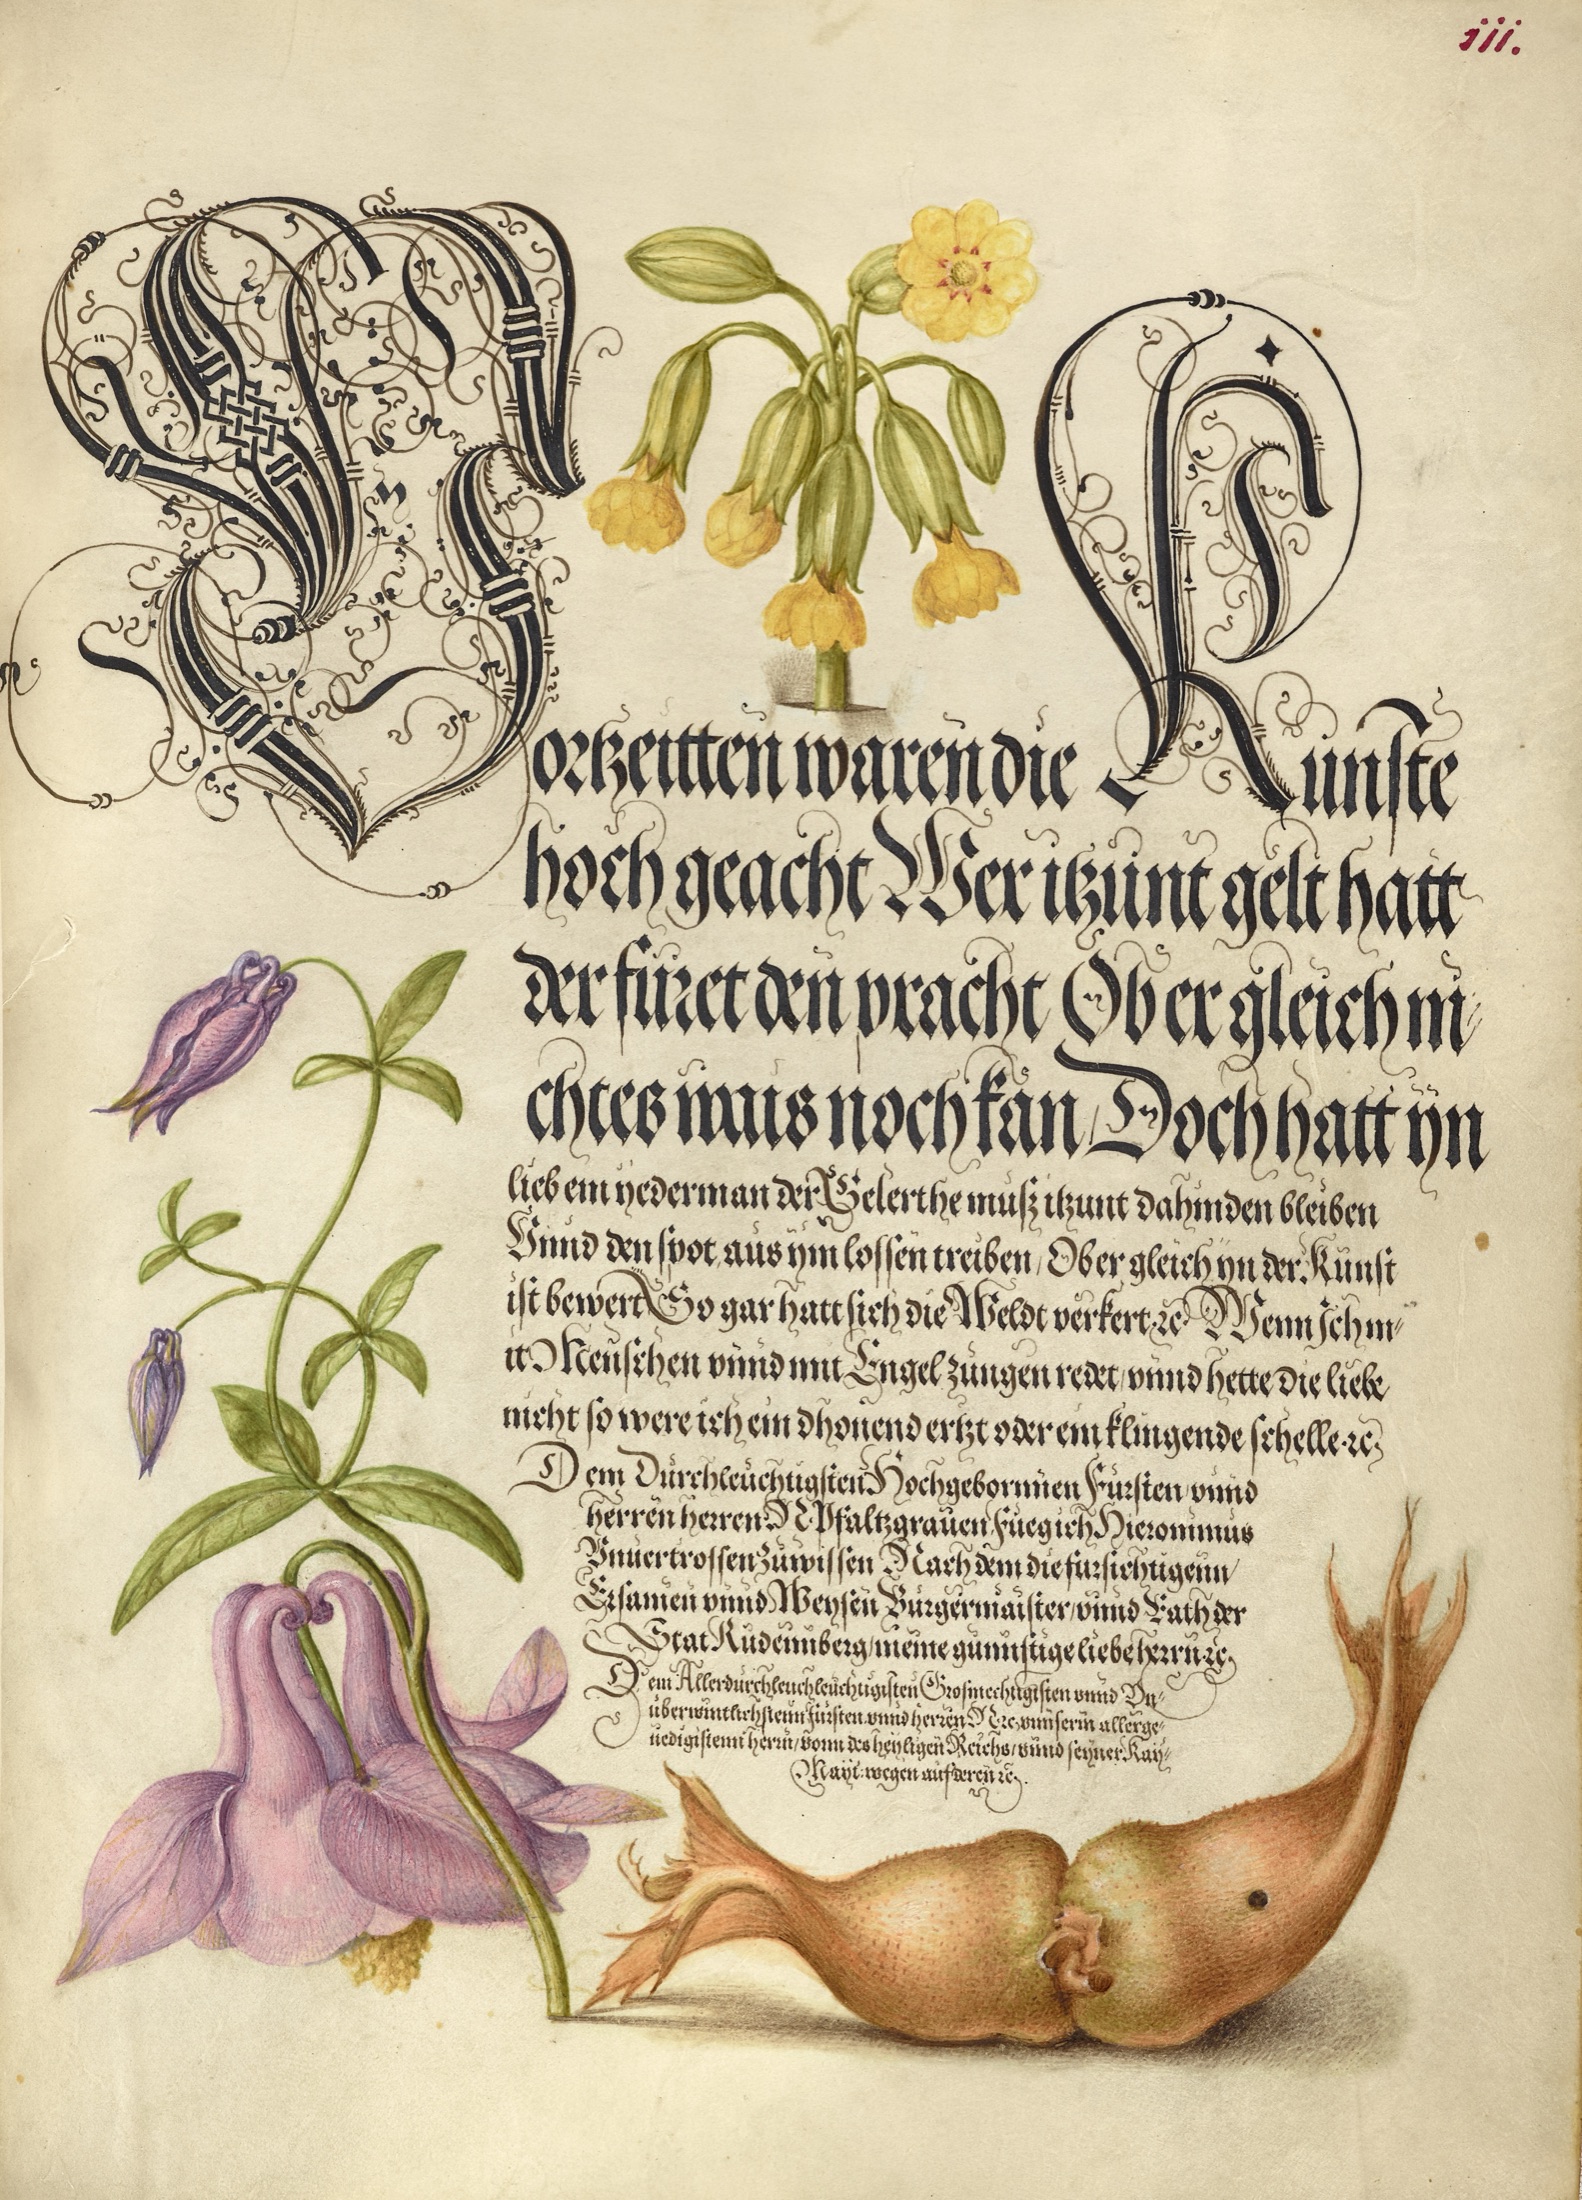 iii.
Vortzeitten waren die Künste
hoch geacht Wer itzünt gelt hatt
der füret den pracht Ob er gleich ni⸗
chtes wais noch kan / Doch hatt yn
lieb ein yederman der Gelerthe musz itzunt dahinden bleiben
Vnnd den spot aus ym lossen treiben / Ob er gleich yn der Kunst
ist bewert So gar hatt sich die Weldt verkert ꝛc Wenn Ich m⸗
it Menschen vnnd mit Engel zungen redet / vnnd hette die liebe
nicht so were ich ein dhonend ertzt oder ein klingende schelle ꝛc
Dem Durchleuchtigsten Hochgebornnen Fürsten / vnnd
herren herren N Pfaltzgrauen Fueg ich Hieronimus
Vnuertrossen zuwissen Nach dem die fursichtigenn /
Ersamen vnnd Weysen Burgermaister / vnnd Rath der
Stat Rudennberg / meine gunnstige liebe herrn ꝛc
Dem Allerdurchleuchleuchtigisten Grosmechtigisten vnnd Vn⸗
uberwintlichstenn Fursten vnnd herren N ꝛc vnnserm allerge⸗
nedigistenn herrn / vonn des heyligen Reichs / vnnd seyner Kay⸗
Mayt: wegen aufderen ꝛc